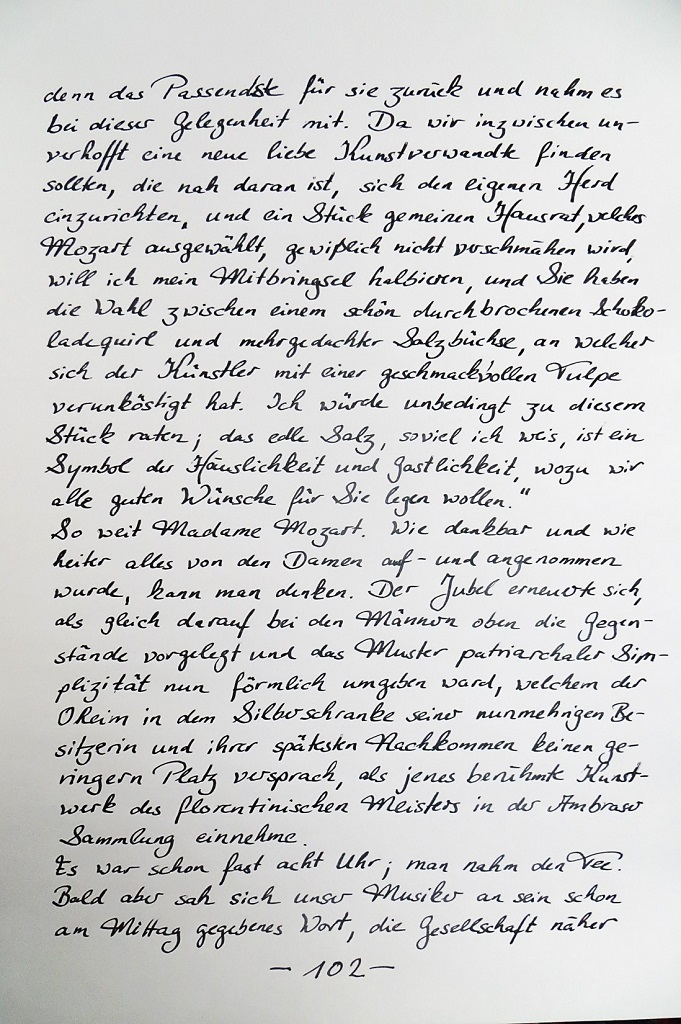 denn das Passendste für sie zurück und nahm es
bei dieser Gelegenheit mit. Da wir inzwischen un-
verhofft eine neue liebe Kunstverwandte finden
sollten, die nah daran ist, sich den eigenen Herd
einzurichten, und ein Stück gemeinen Hausrat, welches
Mozart ausgewählt, gewißlich nicht verschmähen wird,
will ich mein Mitbringsel halbieren, und Sie haben
die Wahl zwischen einem schön durchbrochenen Schoko-
ladequirl und mehrgedachter Salzbüchse, an welcher
sich der Künstler mit einer geschmackvollen Tulpe
verunköstigt hat. Ich würde unbedingt zu diesem
Stück raten; das edle Salz, soviel ich weis, ist ein
Symbol der Häuslichkeit und Gastlichkeit, wozu wir
alle guten Wünsche für Sie legen wollen."
So weit Madame Mozart. Wie dankbar und wie
heiter alles von den Damen auf- und angenommen
wurde, kann man denken. Der Jubel erneuerte sich,
als gleich darauf bei den Männern oben die Gegen-
stände vorgelegt und das Muster patriarchaler Sim-
plizität nun förmlich umgeben ward, welchem der
Oheim in dem Silberschranke seiner nunmehrigen Be-
sitzerin und ihrer spätesten Nachkommen keinen ge-
ringern Platz versprach, als jenes berühmte Kunst-
werk des florentinischen Meisters in der Ambraser
Sammlung einnehme.
Es war schon fast acht Uhr; man nahm den Tee.
Bald aber sah sich unser Musiker an sein schon
am Mittag gegebenes Wort, die Gesellschaft näher
- 102 -